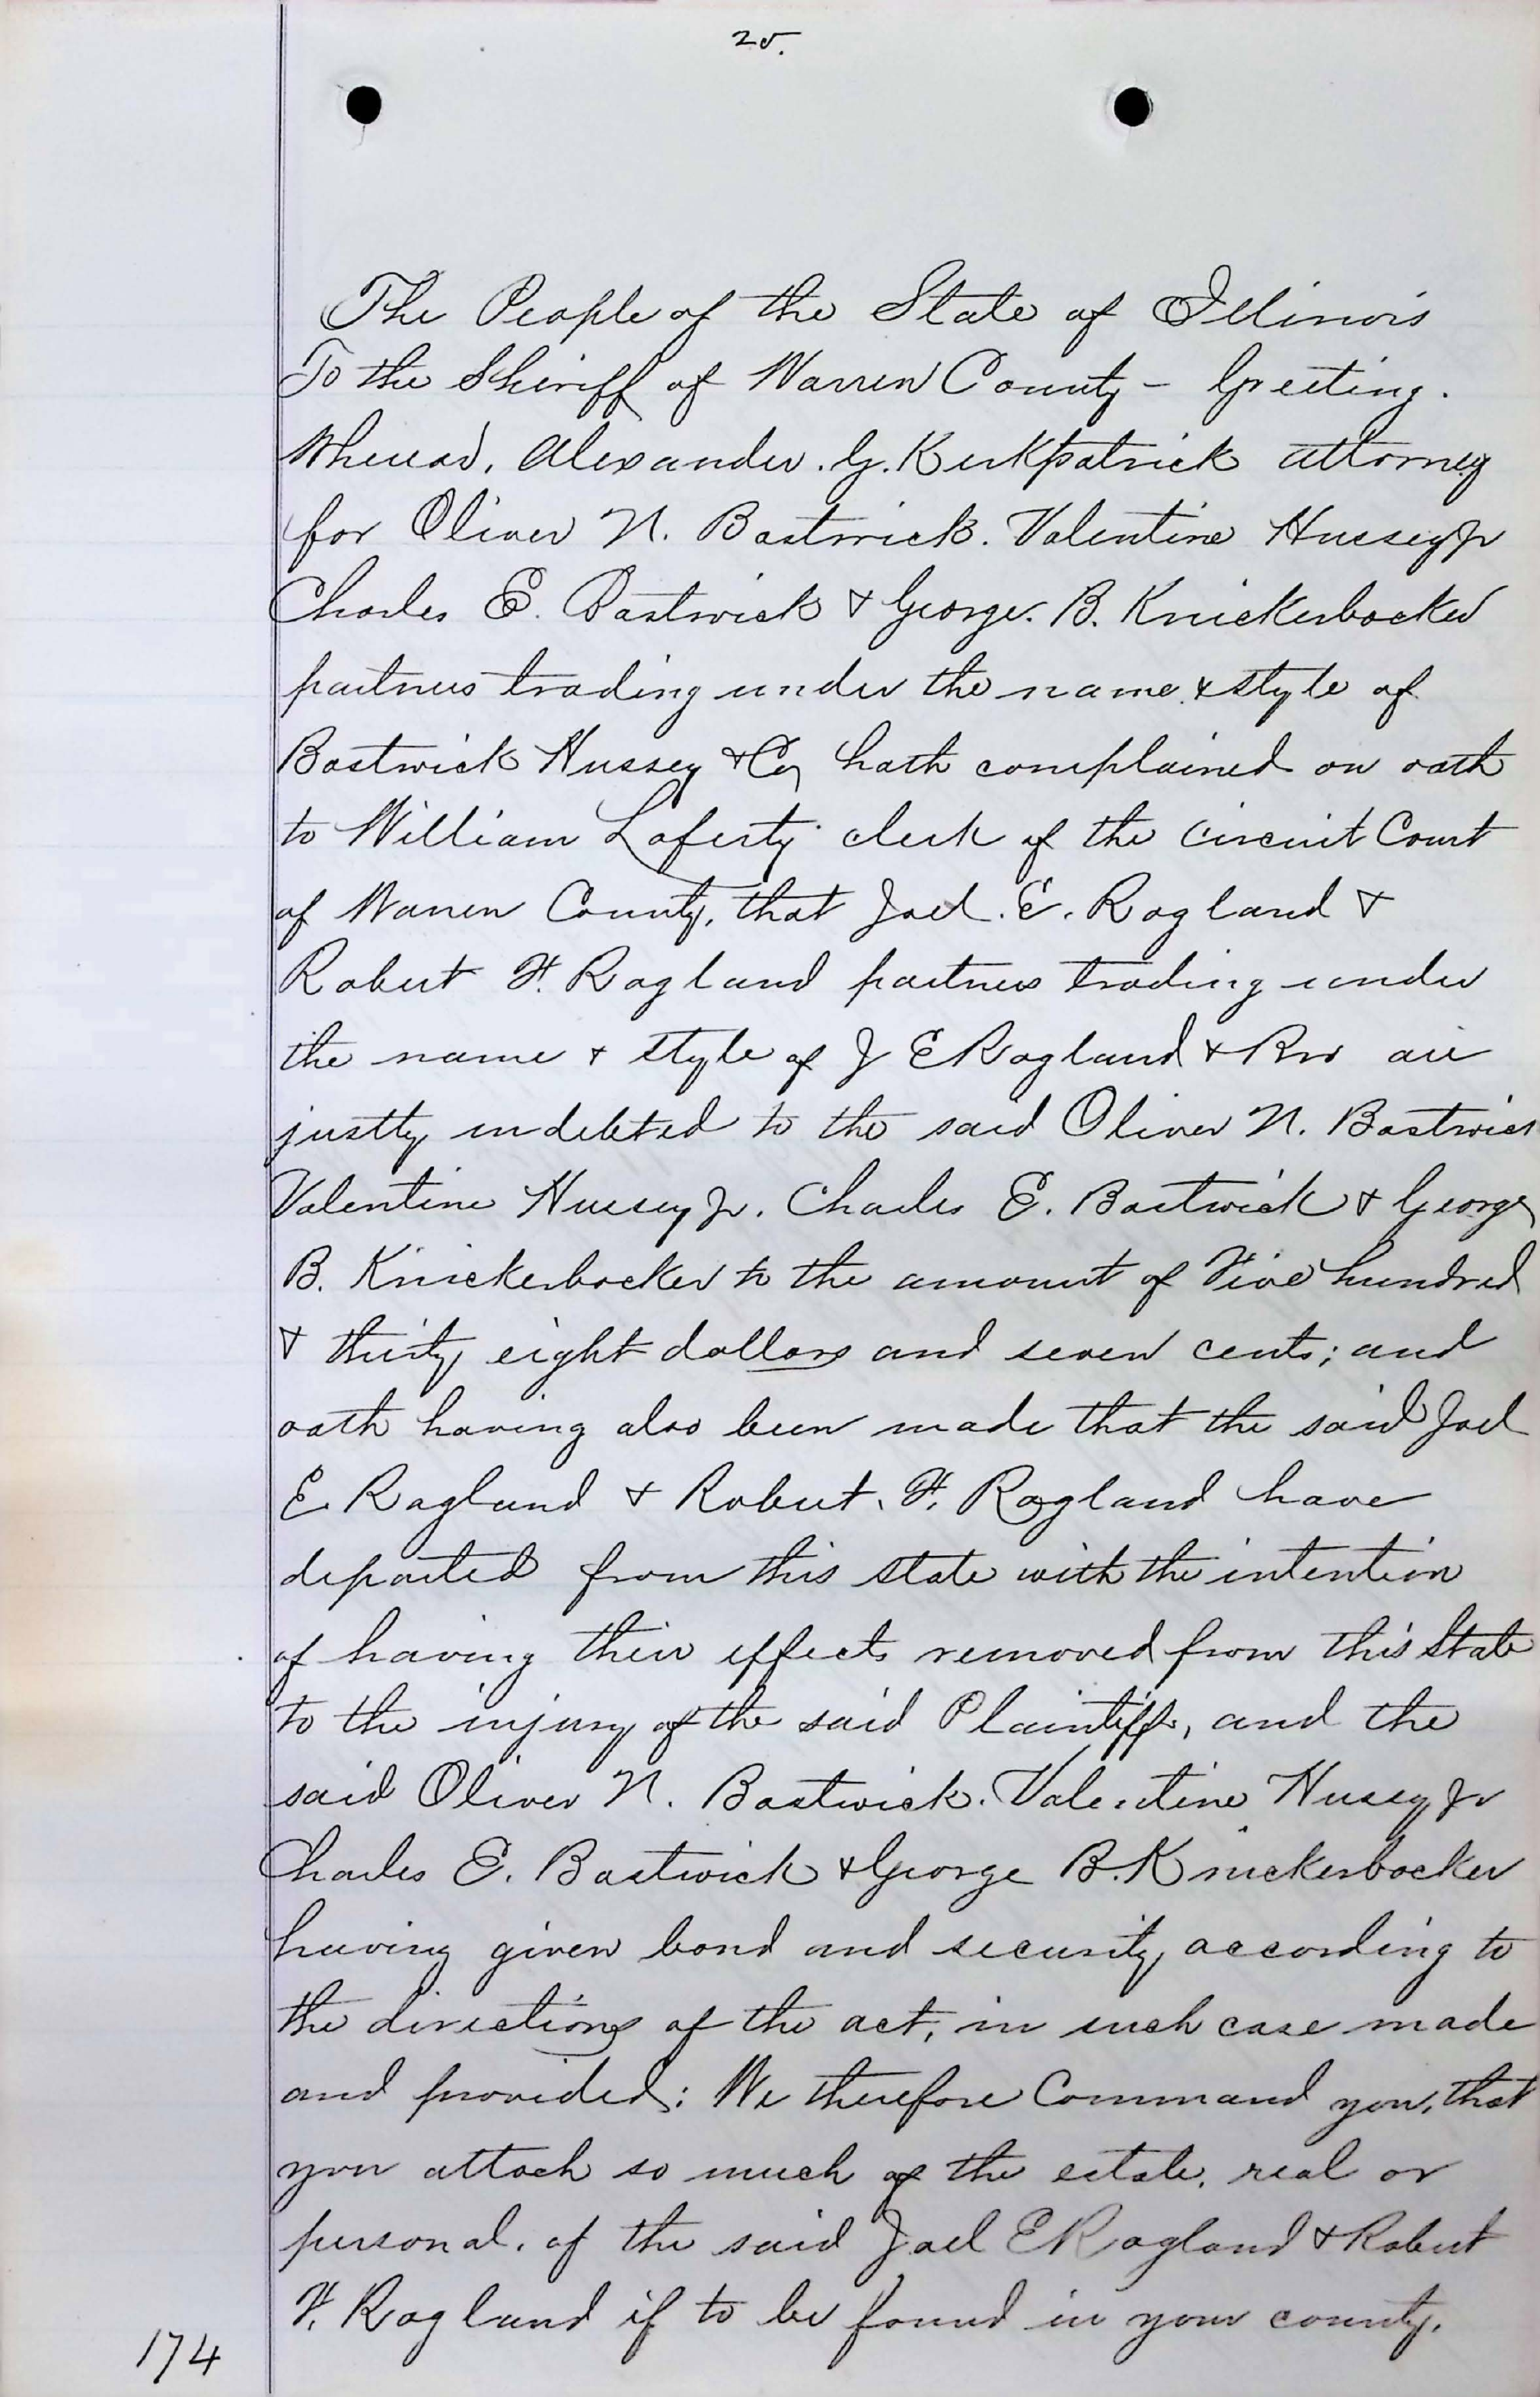 25.
The People of the State of Illinois
To the Sheriff of Warren County – Greeting.
Whereas, Alexander. G. Kirkpatrick attorney
for Oliver N. Bostwick. Valentine Hussey Jr
Charles E. Bostwick & George. B. Knickerbocker
partners trading under the name & style of
Bostwick Hussey & Co, hath complained on oath
to William Laferty clerk of the Circuit Court
of Warren County, that Joel. E. Ragland &
Robert F. Ragland partners trading under
the name & style of J E Ragland & Bro are
justly indebted to the said Oliver N. Bostwick
Valentine Hussey Jr. Charles E. Bostwick & George
B. Knickerbocker to the amount of Five hundred
& thirty eight dollars and seven cents; and
oath having also been made that the said Joel
E. Ragland & Robert. F. Ragland have
departed from this state with the intention
of having their effects removed from this State
to the injury of the said Plaintiffs, and the
said Oliver N. Bostwick. Valentine Hussey Jr
Charles E. Bostwick & George B. Knickerbocker
having given bond and security according to
the directions of the act, in such case made
and provided: We therefore Command you, that
you attach so much of the estate, real or
personal, of the said Joel E Ragland & Robert
F. Ragland if to be found in your county.
174